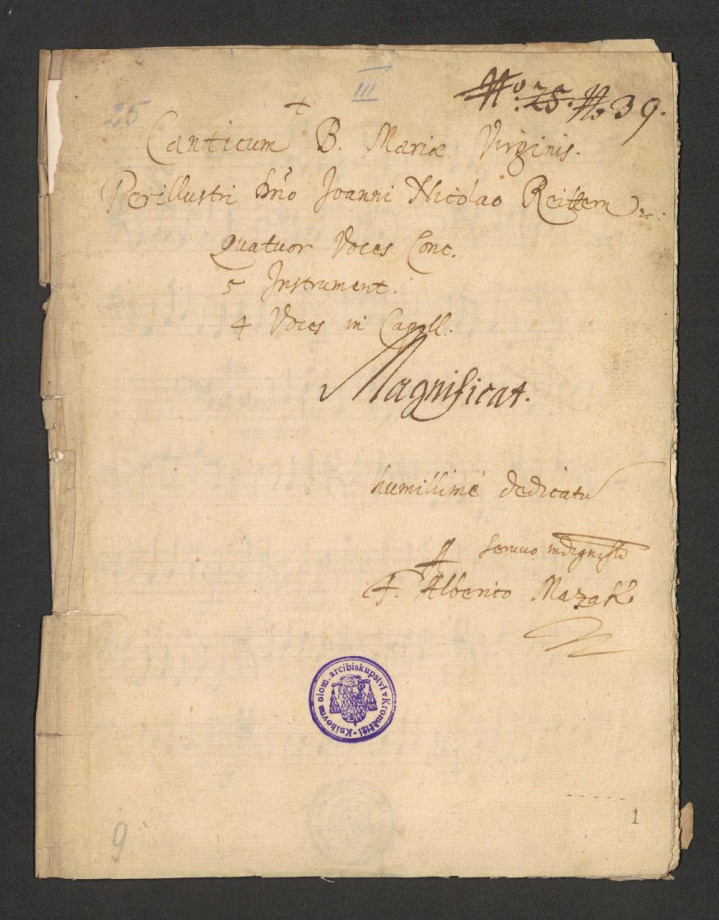 25
III
No: 25. No 39.
+
Canticum B. Mariæ Virginis.
Perillustri Dño Joanni Nicolao Reittern
Quatuor Voces Conc.
5 Instrument.
4 Voces in Capell.
Magnificat.
humillimé dedicatũ
A servo indigniss̃o
F. Alberico Mazak.
Knihovna olom. arcibiskupství v Kroměříži
9
1